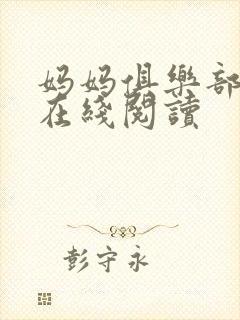 妈妈俱樂部
在綫閱讀
彭守永